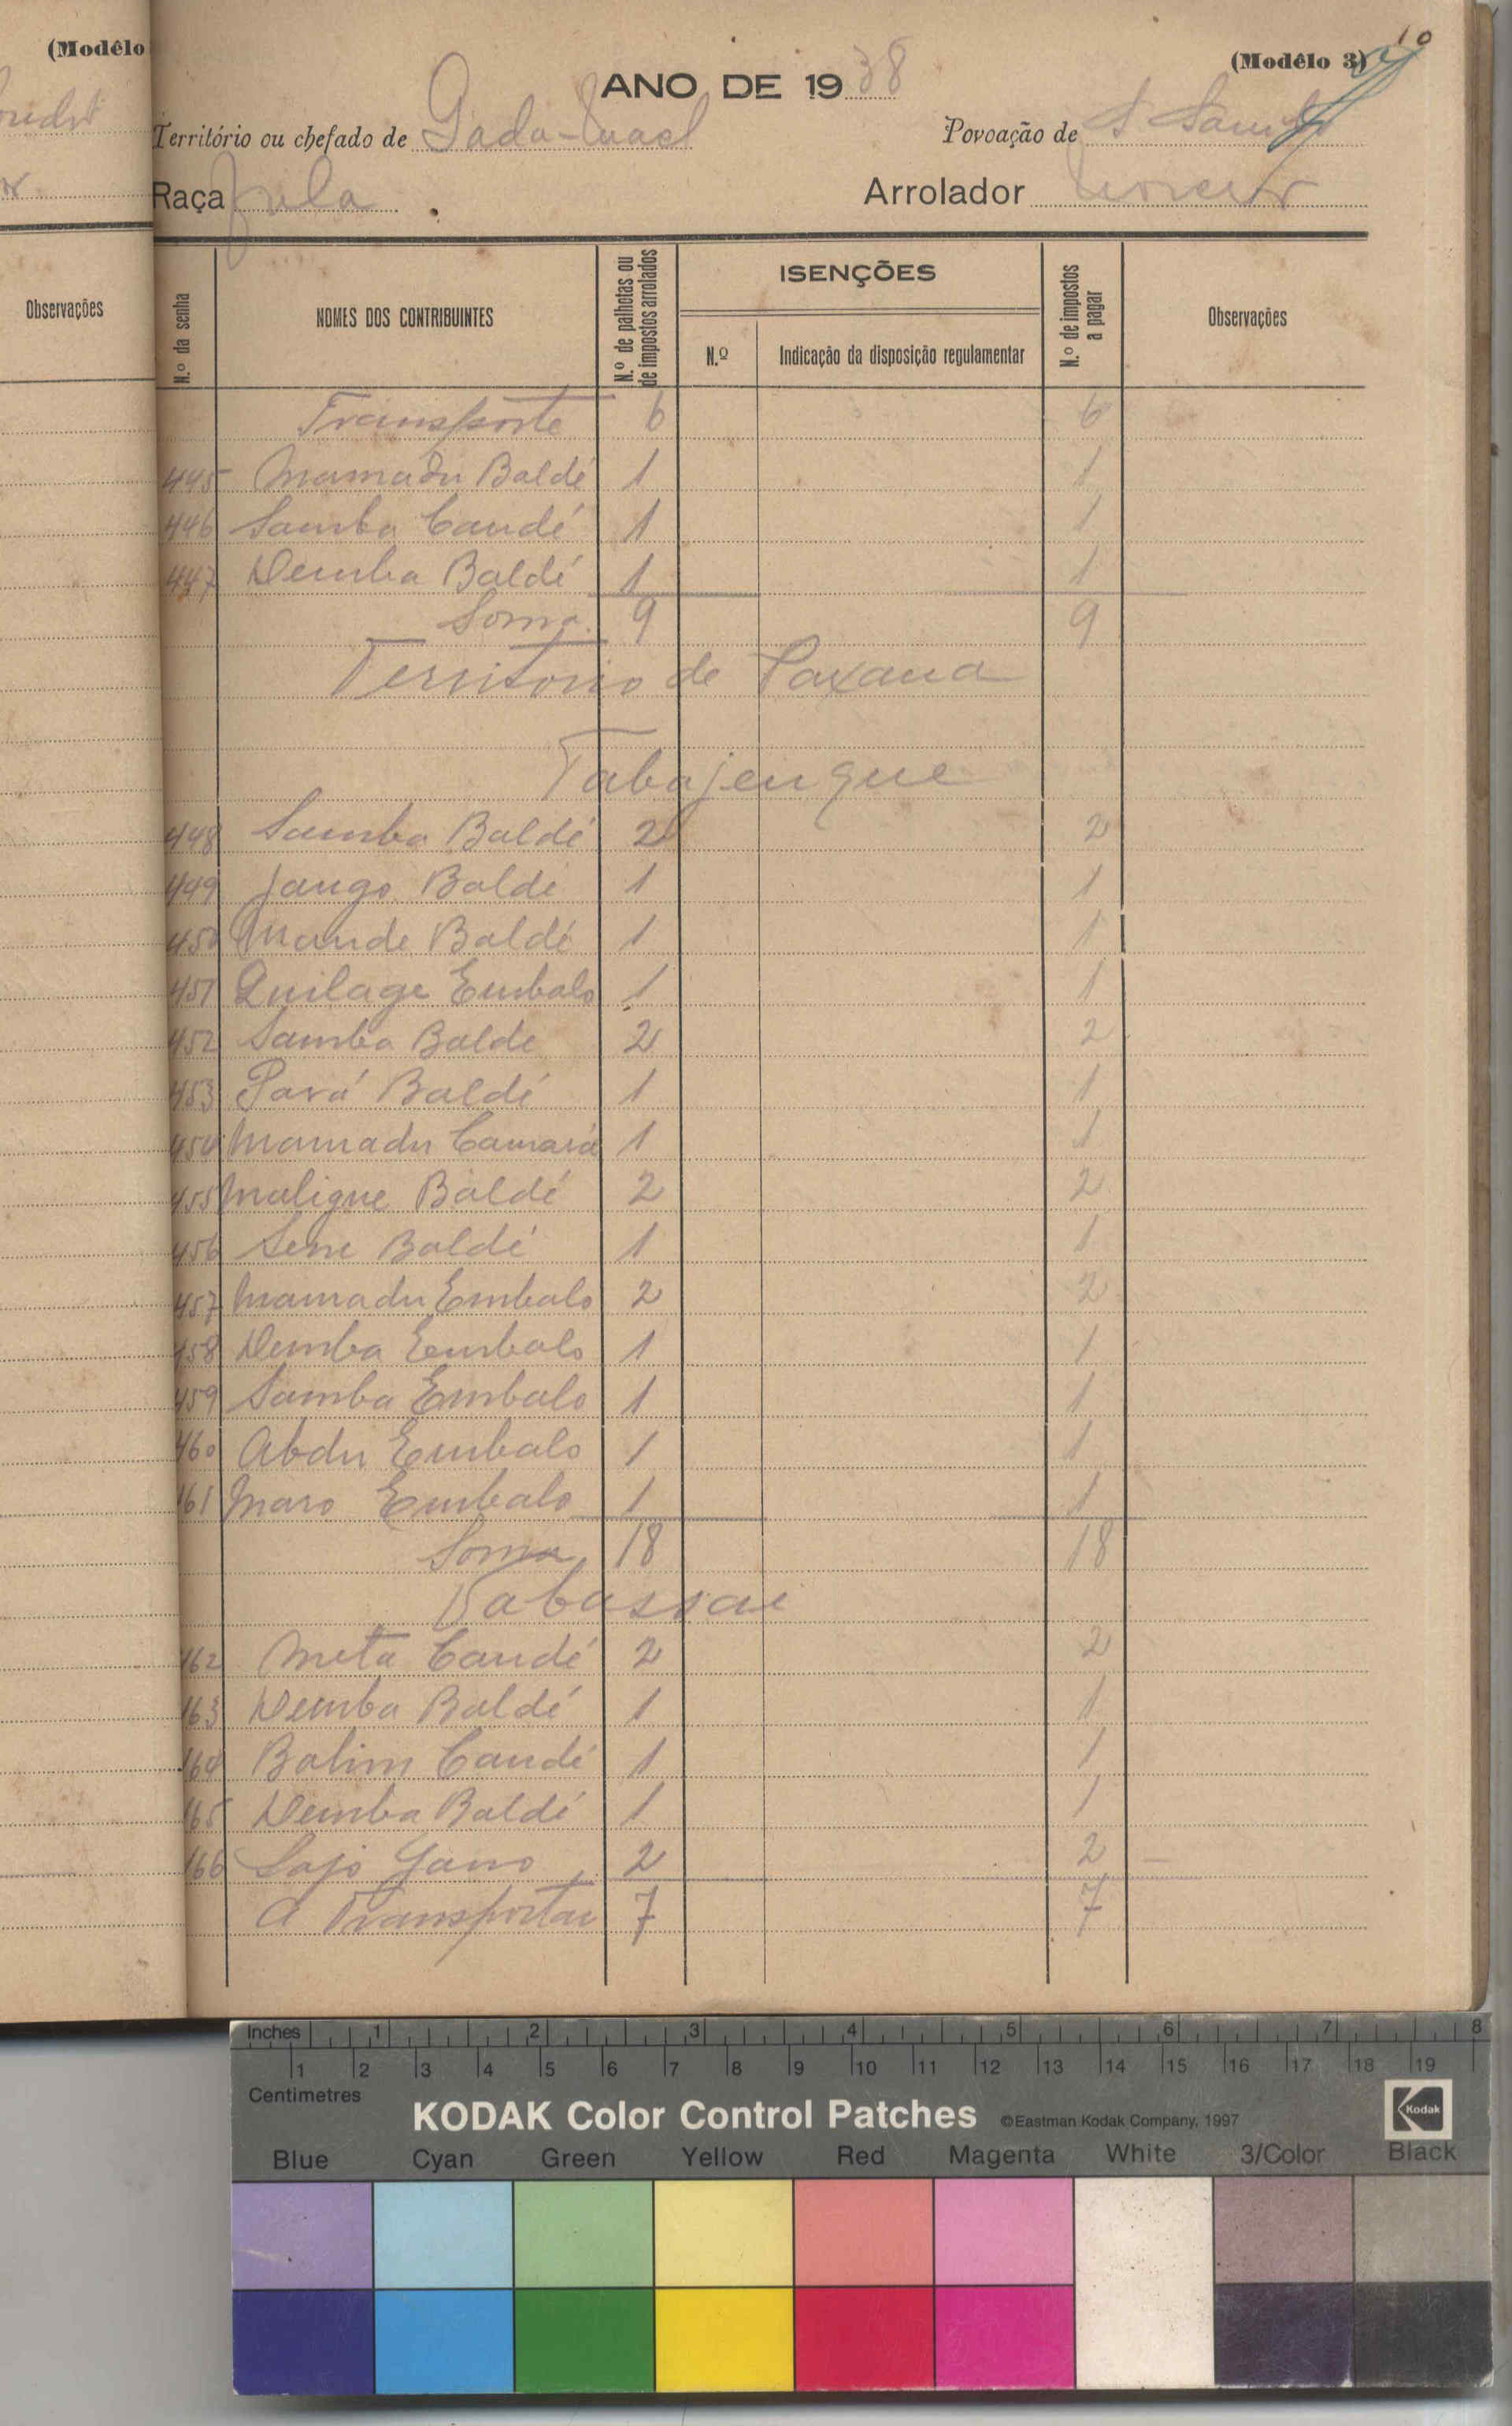 (Modêlo
Observações
10
(Modêlo 3)
ANO DE 1938
Território ou chefado de Gada-Mael
Povoação de S. Samba
Raça Fula
Arrolador
N.º da senha
NOMES DOS CONTRIBUINTES
N.º de palhotas ou de impostos arrolados
ISENÇÕES
N.º
Indicação da disposição regulamentar
N.º de impostos a pagar
Observações
Transporte 6 6
445 Mamadu Baldé 1 1
446 Samba Candé 1 1
447 Demba Baldé 1 1
Soma 9 9
Territorio de Paxana
Tabajenque
448 Samba Baldé 2 2
449 Jango Baldé 1 1
450 Mande Baldé 1 1
451 Quilage Embalo 1 1
452 Samba Balde 2 2
453 Pavá Baldé 1 1
454 Mamadu Camará 1 1
455 Maligue Baldé 2 2
456 Sene Baldé 1 1
457 Mamadu Embalo 2 2
458 Demba Embalo 1 1
459 Samba Embalo 1 1
460 Abdu Embalo 1 1
461 Maro Embalo 1 1
Soma 18 18
Tabassai
462 Meta Candé 2 2
463 Demba Baldé 1 1
464 Balim Candé 1 1
465 Demba Baldé 1 1
466 Sajo Gano 2 2
A Transportar 7 7
Inches 1 2 3 4 5 6 7 8
1 2 3 4 5 6 7 8 9 10 11 12 13 14 15 16 17 18 19
Centimetres
KODAK Color Control Patches ©Eastman Kodak Company, 1997 Kodak
Blue Cyan Green Yellow Red Magenta White 3/Color Black